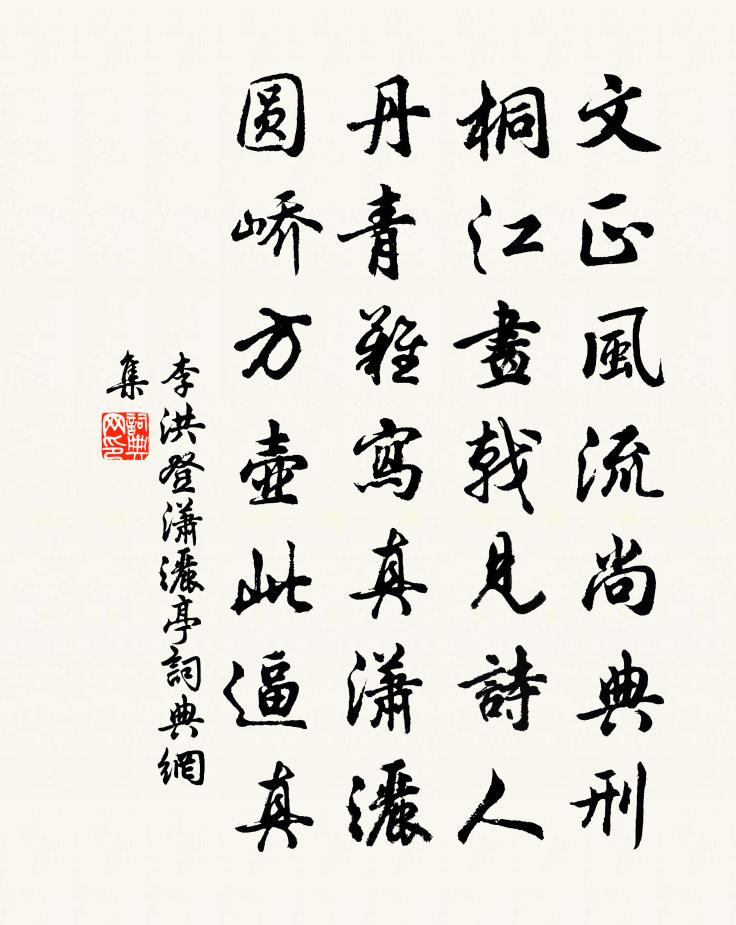 文正風流尚典刑
桐江畫戟見詩人
丹青難寫真瀟灑
圓峤方壺此逼真
李洪登瀟灑亭詞典網
集
詞典
网印